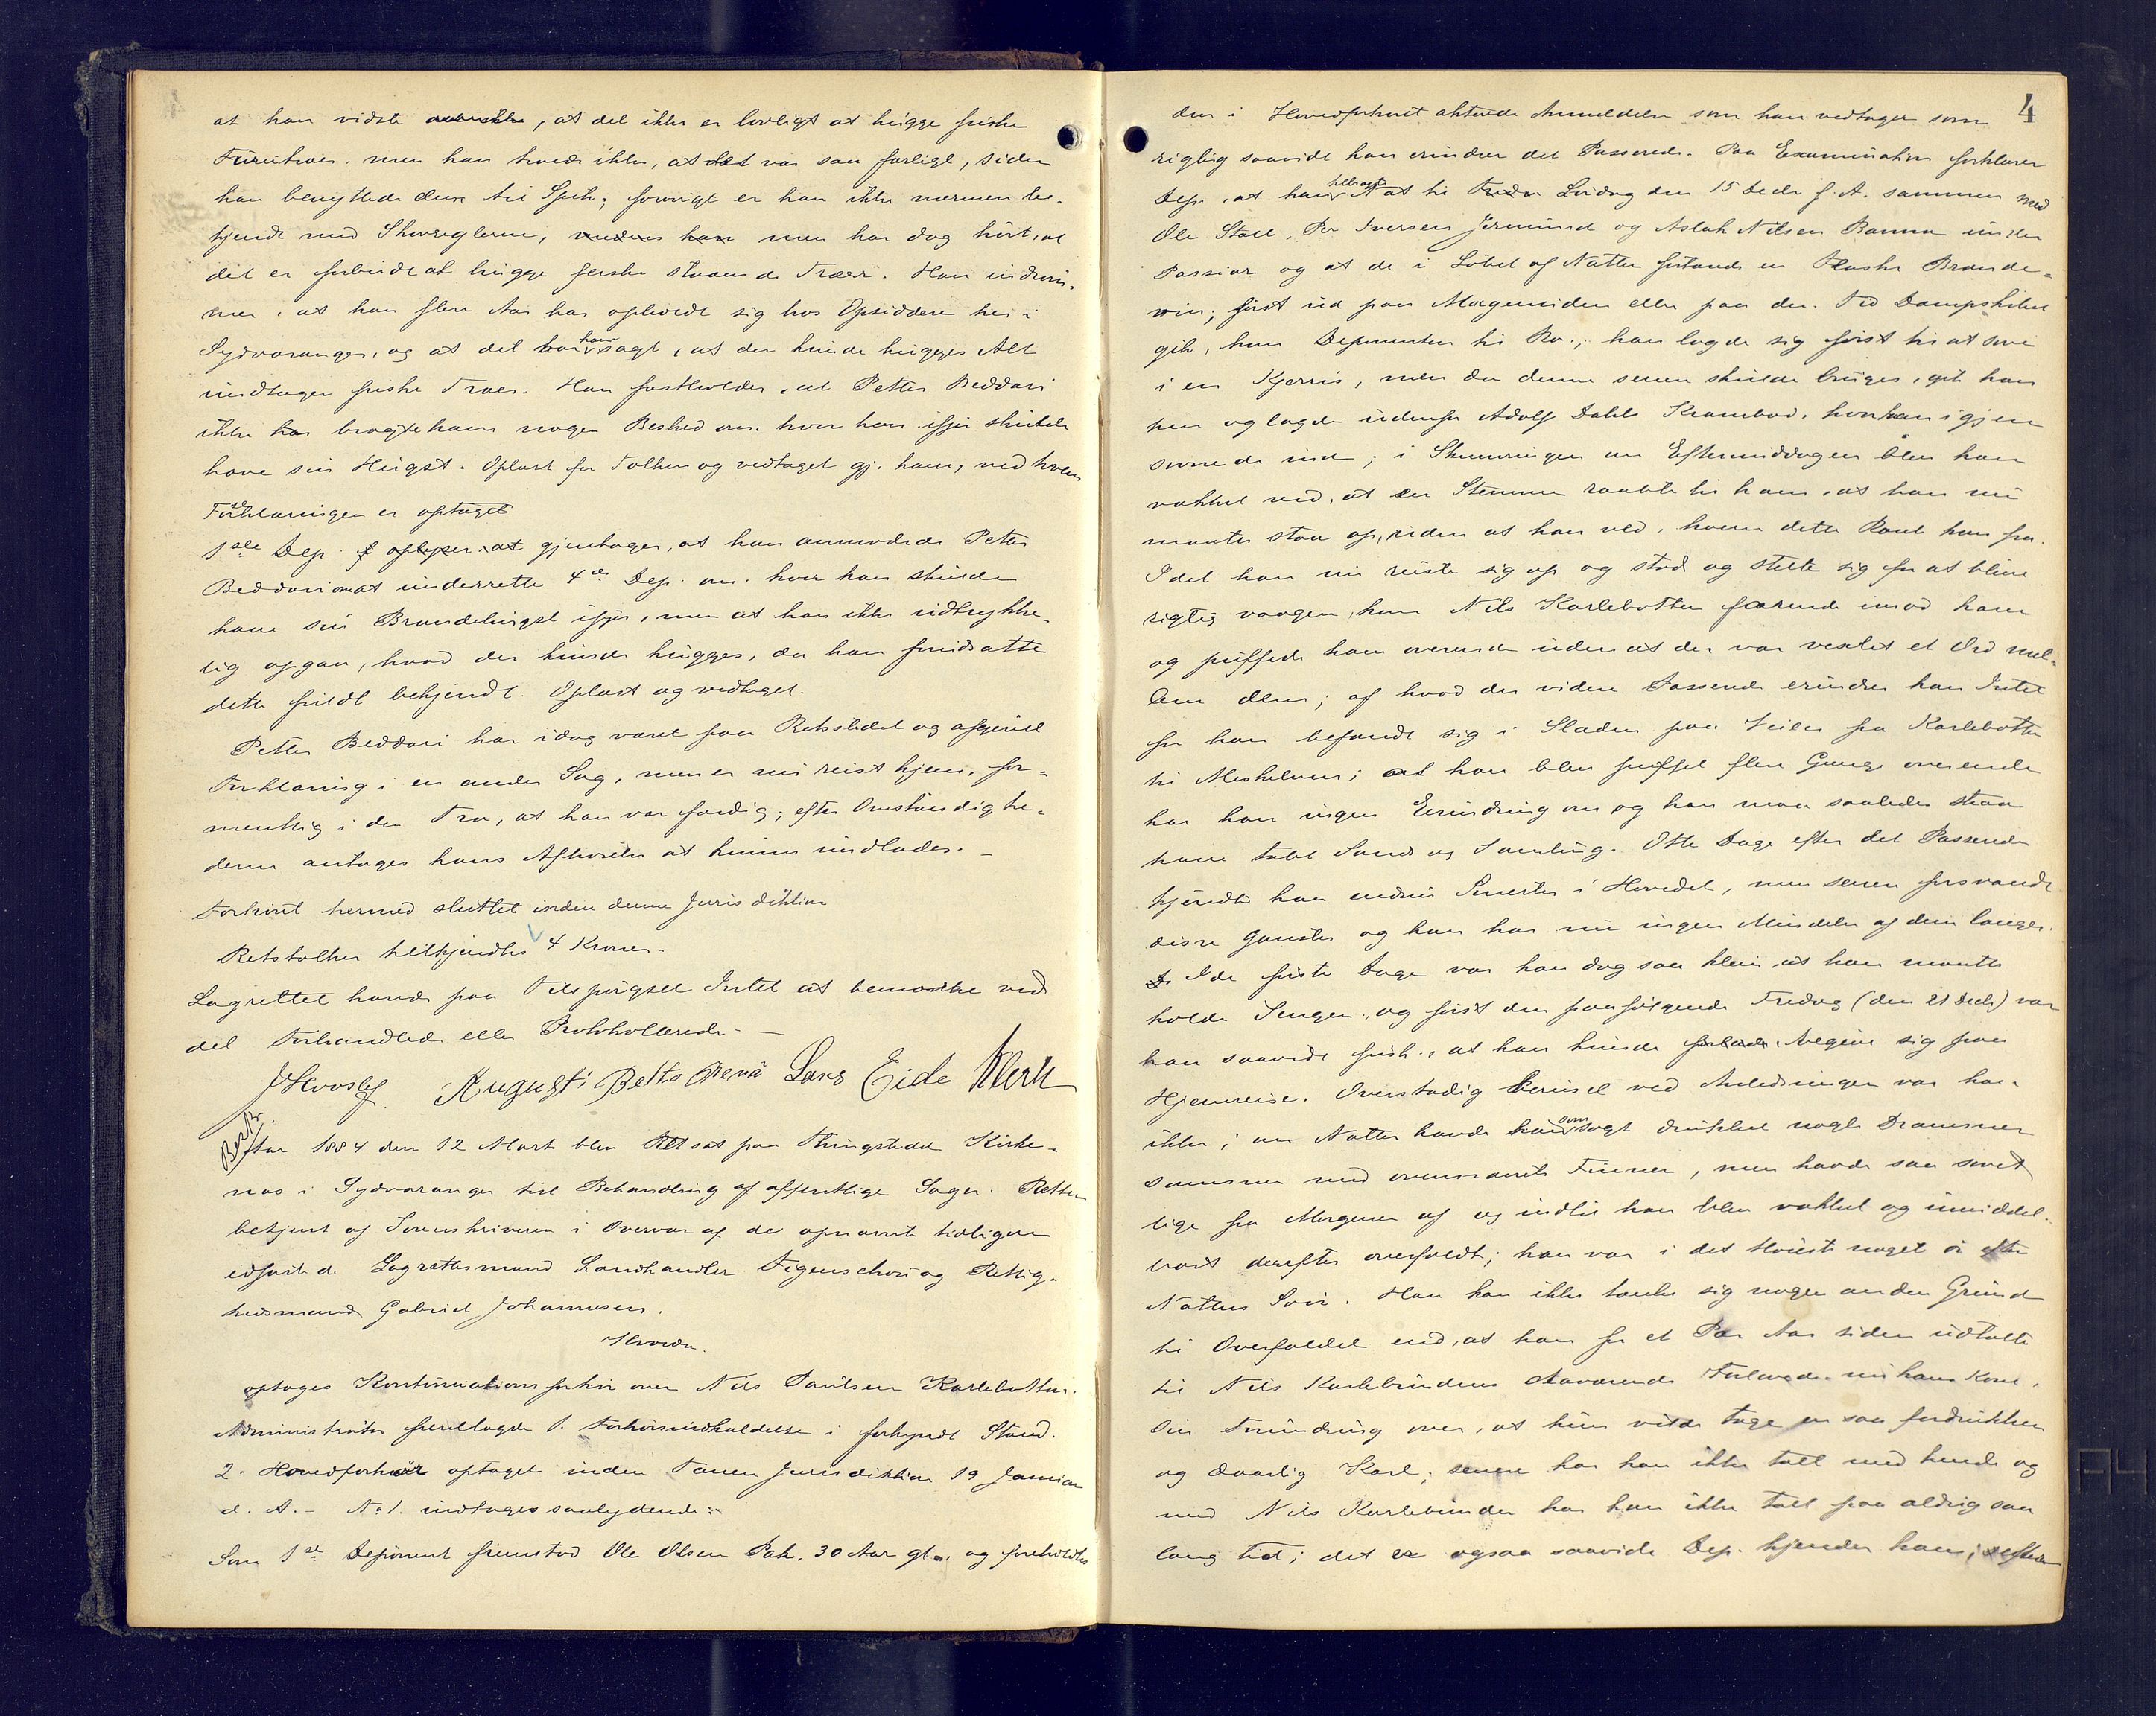 at han vidste, at det ikke er lovligt at hugge friske
Furutræer, men han troede ikke, at det var saa farligt, siden
han benyttede dem til Spik; forøvrigt er han ikke nærmere be-
kjendt med Skovreglerne, men har dog hørt, at
det er forbudt at hugge ferske staaende Træer. Han indrøm-
mer, at han flere Aar har opholdt sig hos Opsiddere her i
Sydvaranger, og at det har han sagt, at der kunde hugges Alt
undtagen friske Træer. Han fastholder, at Petter Beddari
ikke har bragt ham nogen Besked om, hvor han ifjor skulde
have sin Hugst. Oplæst for Tolken og vedtaget gj. ham, ved hvem
Forklaringen er optaget
1ste Dep. gjentager, at han anmodede Petter
Beddari om at underrette 4de Dep. om, hvor han skulde
have sin Brændehugst ifjor, men at han ikke udtrykke-
lig opgav, hvad der kunde hugges, da han forudsatte
dette fuldt bekjendt. Oplæst og vedtaget.
Petter Beddari har idag været paa Retsstedet og afgivet
Forklaring i en anden Sag, men er nu reist hjem, for-
mentlig i den Tro, at han var færdig; efter Omstændighe-
derne antages hans Afhørelse at kunne undlades. –
Forhøret hermed sluttet inden denne Jurisdiktion
Retstolken tilkjendtes 4 Kroner.
Lagrettet havde paa Tilspørgsel Intet at bemærke ved
det Forhandlede eller Protokollerede. –
August Belto Lars Eide Klerk
Aar 1884 den 12 Marts blev Ret sat paa Thingstedet Kirke-
næs i Sydvaranger til Behandling af offentlige Sager. Retten
betjent af Sorenskriveren i Overvær af de opnævnte tidligere
edfæstede Lagrettesmænd Landhandler Figenschou og Rettig-
hedsmand Gabriel Johannesen.
Hvorda.
optages Kontinuationsforhør over Nils Paulsen Karlebotten.
Administrator fremlagde 1. Forhørsindkaldelse i forkyndt Stand.
2. Hovedforhør optaget inden Tanen Jurisdiktion 19 Januar
d. A. – No 1. indtages saalydende:
Som 1ste Deponent fremstod Ole Olsen Pak, 30 Aar gl., og foreholdtes
4
den i Hovedforhøret akterede Anmeldelse som han vedtager som
rigtig saavidt han erindrer det Passerede. Paa Examination forklarer
Dep., at han tilbragte Nat til Lørdag den 15 Decbr f. A. sammen med
Ole Stall, Per Iversen Jermund og Aslak Nilsen Banna under
Passiar og at de i Løbet af Natten fortærede en Flaske Brænde-
vin; først ud paa Morgensiden eller paa den Tid Dampskibet
gik, kom Deponenten til Ro; han lagde sig først til at sove
i en Kjerris, men da denne senere skulde bruges, gik han
hen og lagde udenfor Adolf Dahls Krambod, hvor han igjen
sovnede ind; i Skumringen om Eftermiddagen blev han
vækket ved, at en Stemme raabte til ham, at han nu
maatte staa op, uden at han ved, hvem dette Raab kom fra.
Idet han nu reiste sig op og stod og stelte sig for at blive
rigtig vaagen, kom Nils Karlebotten farende imod ham
og puffede ham overende uden at der var vexlet et Ord mel-
lem dem; af hvad der videre Passerede erindrer han Intet
før han befandt sig i Slæden paa Veien fra Karlebotten
til Meskelven; at han blev puffet flere Gange overende
har han ingen Erindring om og han maa saaledes straa
have tabt Sands og Samling. Otte Dage efter det Passerede
kjendte han endnu Smerter i Hovedet, men senere forsvandt
disse ganske og han har nu ingen Mindelse af dem længer.
I de første Dage var han dog saa klein, at han maatte
holde Sengen, og først den paafølgende Fredag (den 21 Decbr) var
han saavidt frisk, at han kunde begive sig paa
Hjemreise. Overstadig beruset ved Anledningen var han
ikke; om Natten havde han som sagt drukket nogle Drammer
sammen med ovennævnte Finner, men havde saa sovet
lige fra Morgenen af og indtil han blev vækket og umiddel-
bart derefter overfaldt; han var i det Høieste noget ør efter
Nattens Svir. Han kan ikke tænke sig nogen anden Grund
til Overfaldet end, at han for et Par Aar siden udtalte
til Nils Karlebundens daværende Forlovede nu hans Kone,
sin Forundring over, at hun vilde tage en saa fordrukken
og daarlig Karl; senere har han ikke talt med hende og
med Nils Karlebunden har han ikke talt paa aldrig saa
lang Tid; det er ogsaa saavidt Dep. kjender ham;